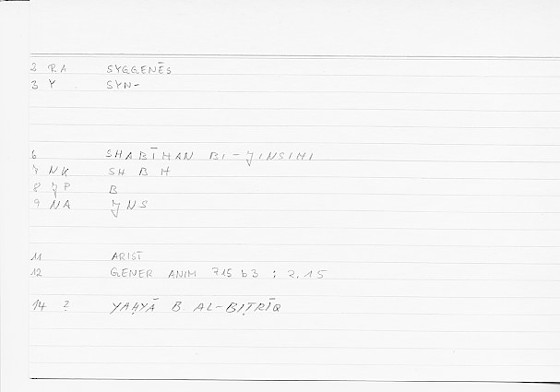 2 RA SYGGENĒS
3 Y SYN-
6 SHABĪHAN BI-JINSIHI
7 NK SH B H
8 JP B
9 NA JNS
11 ARIST
12 GENER ANIM 715 b3 : 2.15
14 ? YAḤYĀ B AL-BIṬRĪQ